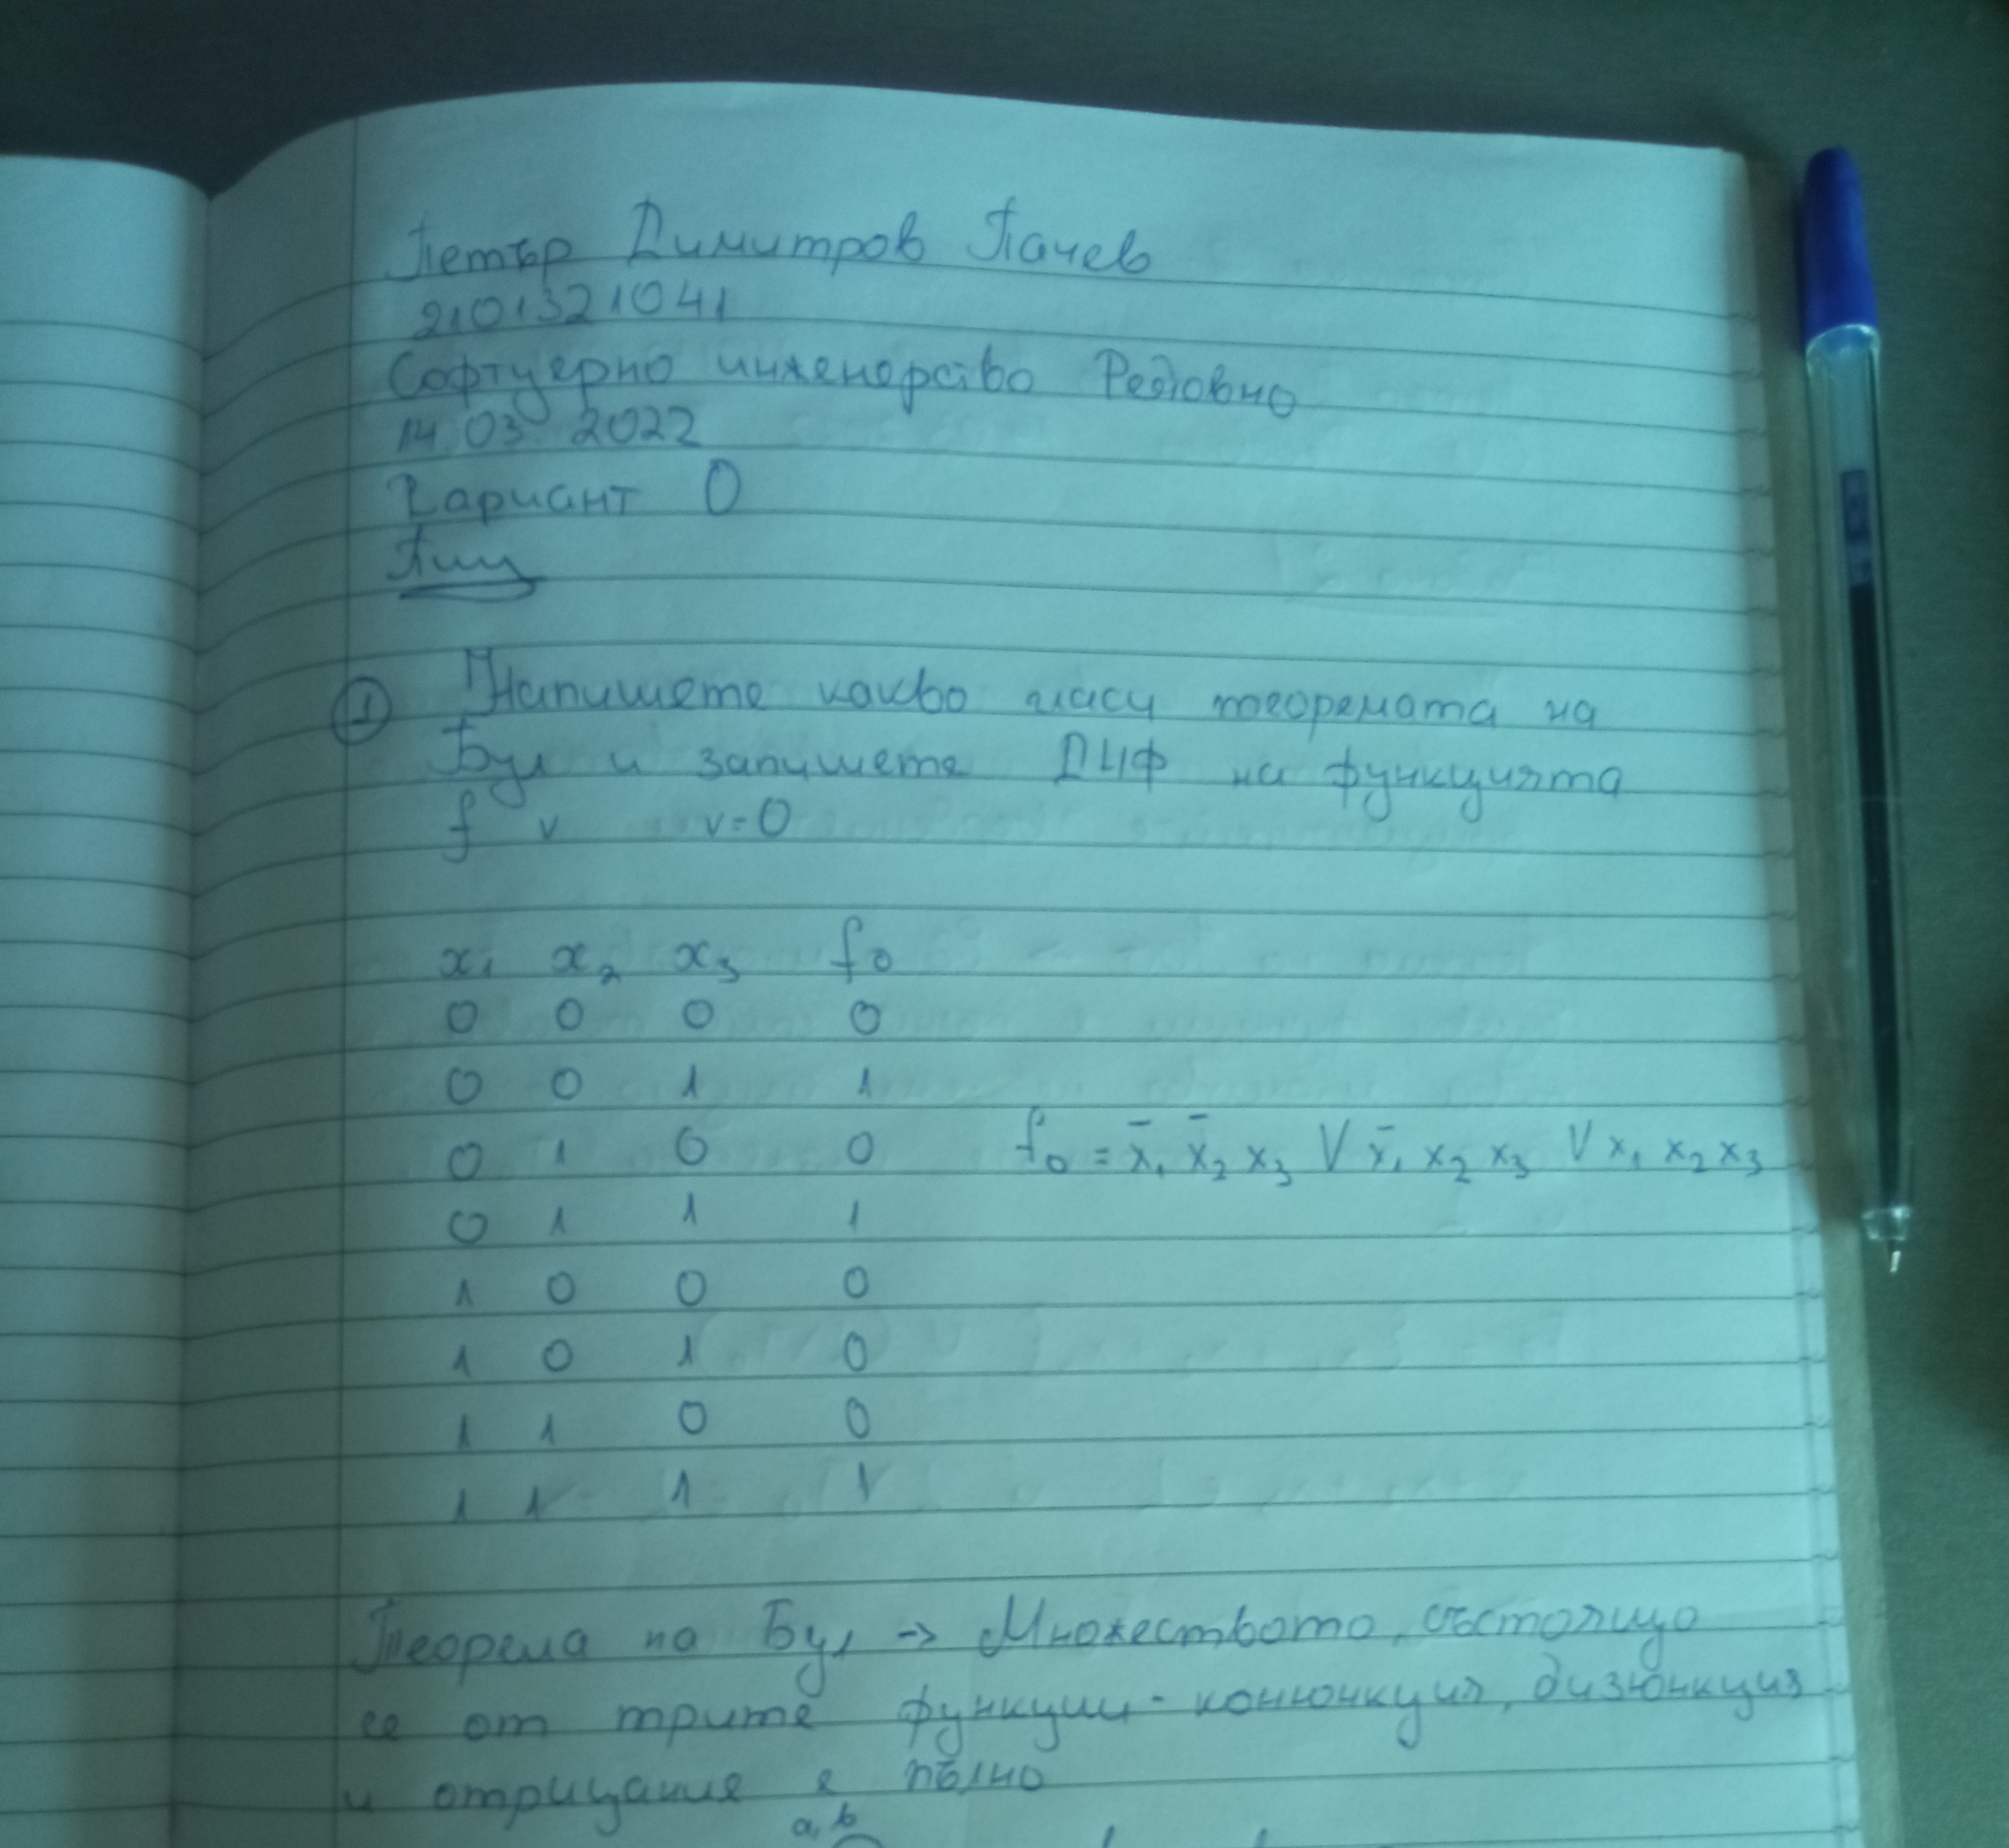 Петър Димитров Пачев
2101321041
Софтуерно инженерство Редовно
14.03.2022
Вариант 0
① Напишете какво гласи теоремата на
Бул и запишете ДНФ на функцията
f v v=0
x₁ x₂ x₃ f₀
0 0 0 0
0 0 1 1
0 1 0 0 f₀ = x̄₁ x̄₂ x₃ V x̄₁ x₂ x₃ V x₁ x₂ x₃
0 1 1 1
1 0 0 0
1 0 1 0
1 1 0 0
1 1 1 1
Теорема на Бул -> Множеството, състоящо
се от трите функции - конюнкция, дизюнкция
и отрицание е пълно
a, b